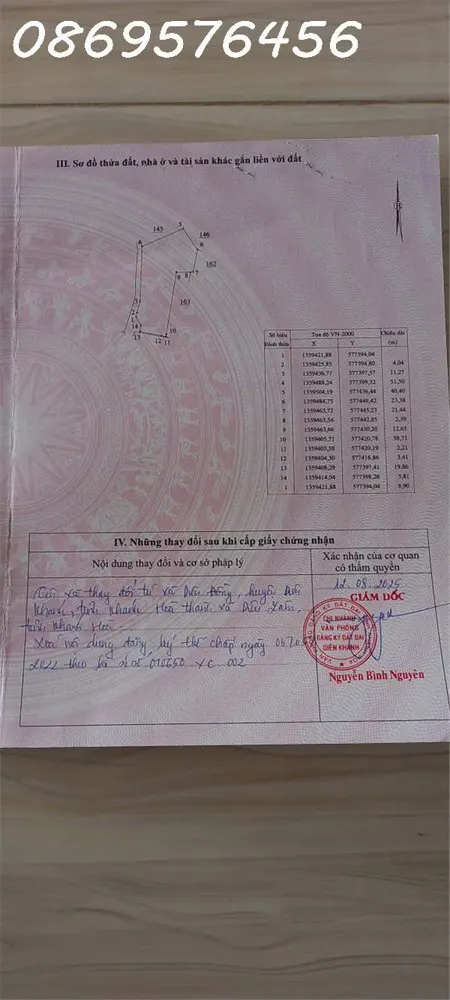 0869576456
III. Sơ đồ thửa đất, nhà ở và tài sản khác gắn liền với đất
145
5
146
4
6
162
9 8 7
163
3
2
1
14
13
10
12 11
Số hiệu Đỉnh thửa Tọa độ VN-2000 Chiều dài (m)
X Y
1 1359421,88 577394,04
2 1359425,85 577394,80 4,04
3 1359436,77 577397,57 11,27
4 1359488,24 577399,32 51,50
5 1359504,19 577436,44 40,40
6 1359484,75 577449,42 23,38
7 1359463,72 577445,23 21,44
8 1359463,54 577442,85 2,39
9 1359463,66 577430,20 12,65
10 1359405,71 577420,78 58,71
11 1359403,58 577420,19 2,21
12 1359404,30 577416,86 3,41
13 1359408,29 577397,41 19,86
14 1359414,04 577398,26 5,81
1 1359421,88 577394,04 8,90
IV. Những thay đổi sau khi cấp giấy chứng nhận
Nội dung thay đổi và cơ sở pháp lý
Xác nhận của cơ quan có thẩm quyền
thay đổi từ xã Diên Đồng, huyện Diên
Khánh, tỉnh Khánh Hòa thành xã Diên
tỉnh Khánh Hòa.
Xoá nội dung đăng ký thế chấp ngày
2022 theo hồ sơ số 010650 . 002
12.08.2025
GIÁM ĐỐC
CHI NHÁNH
VĂN PHÒNG
ĐĂNG KÝ ĐẤT ĐAI
DIÊN KHÁNH
Nguyễn Bình Nguyên